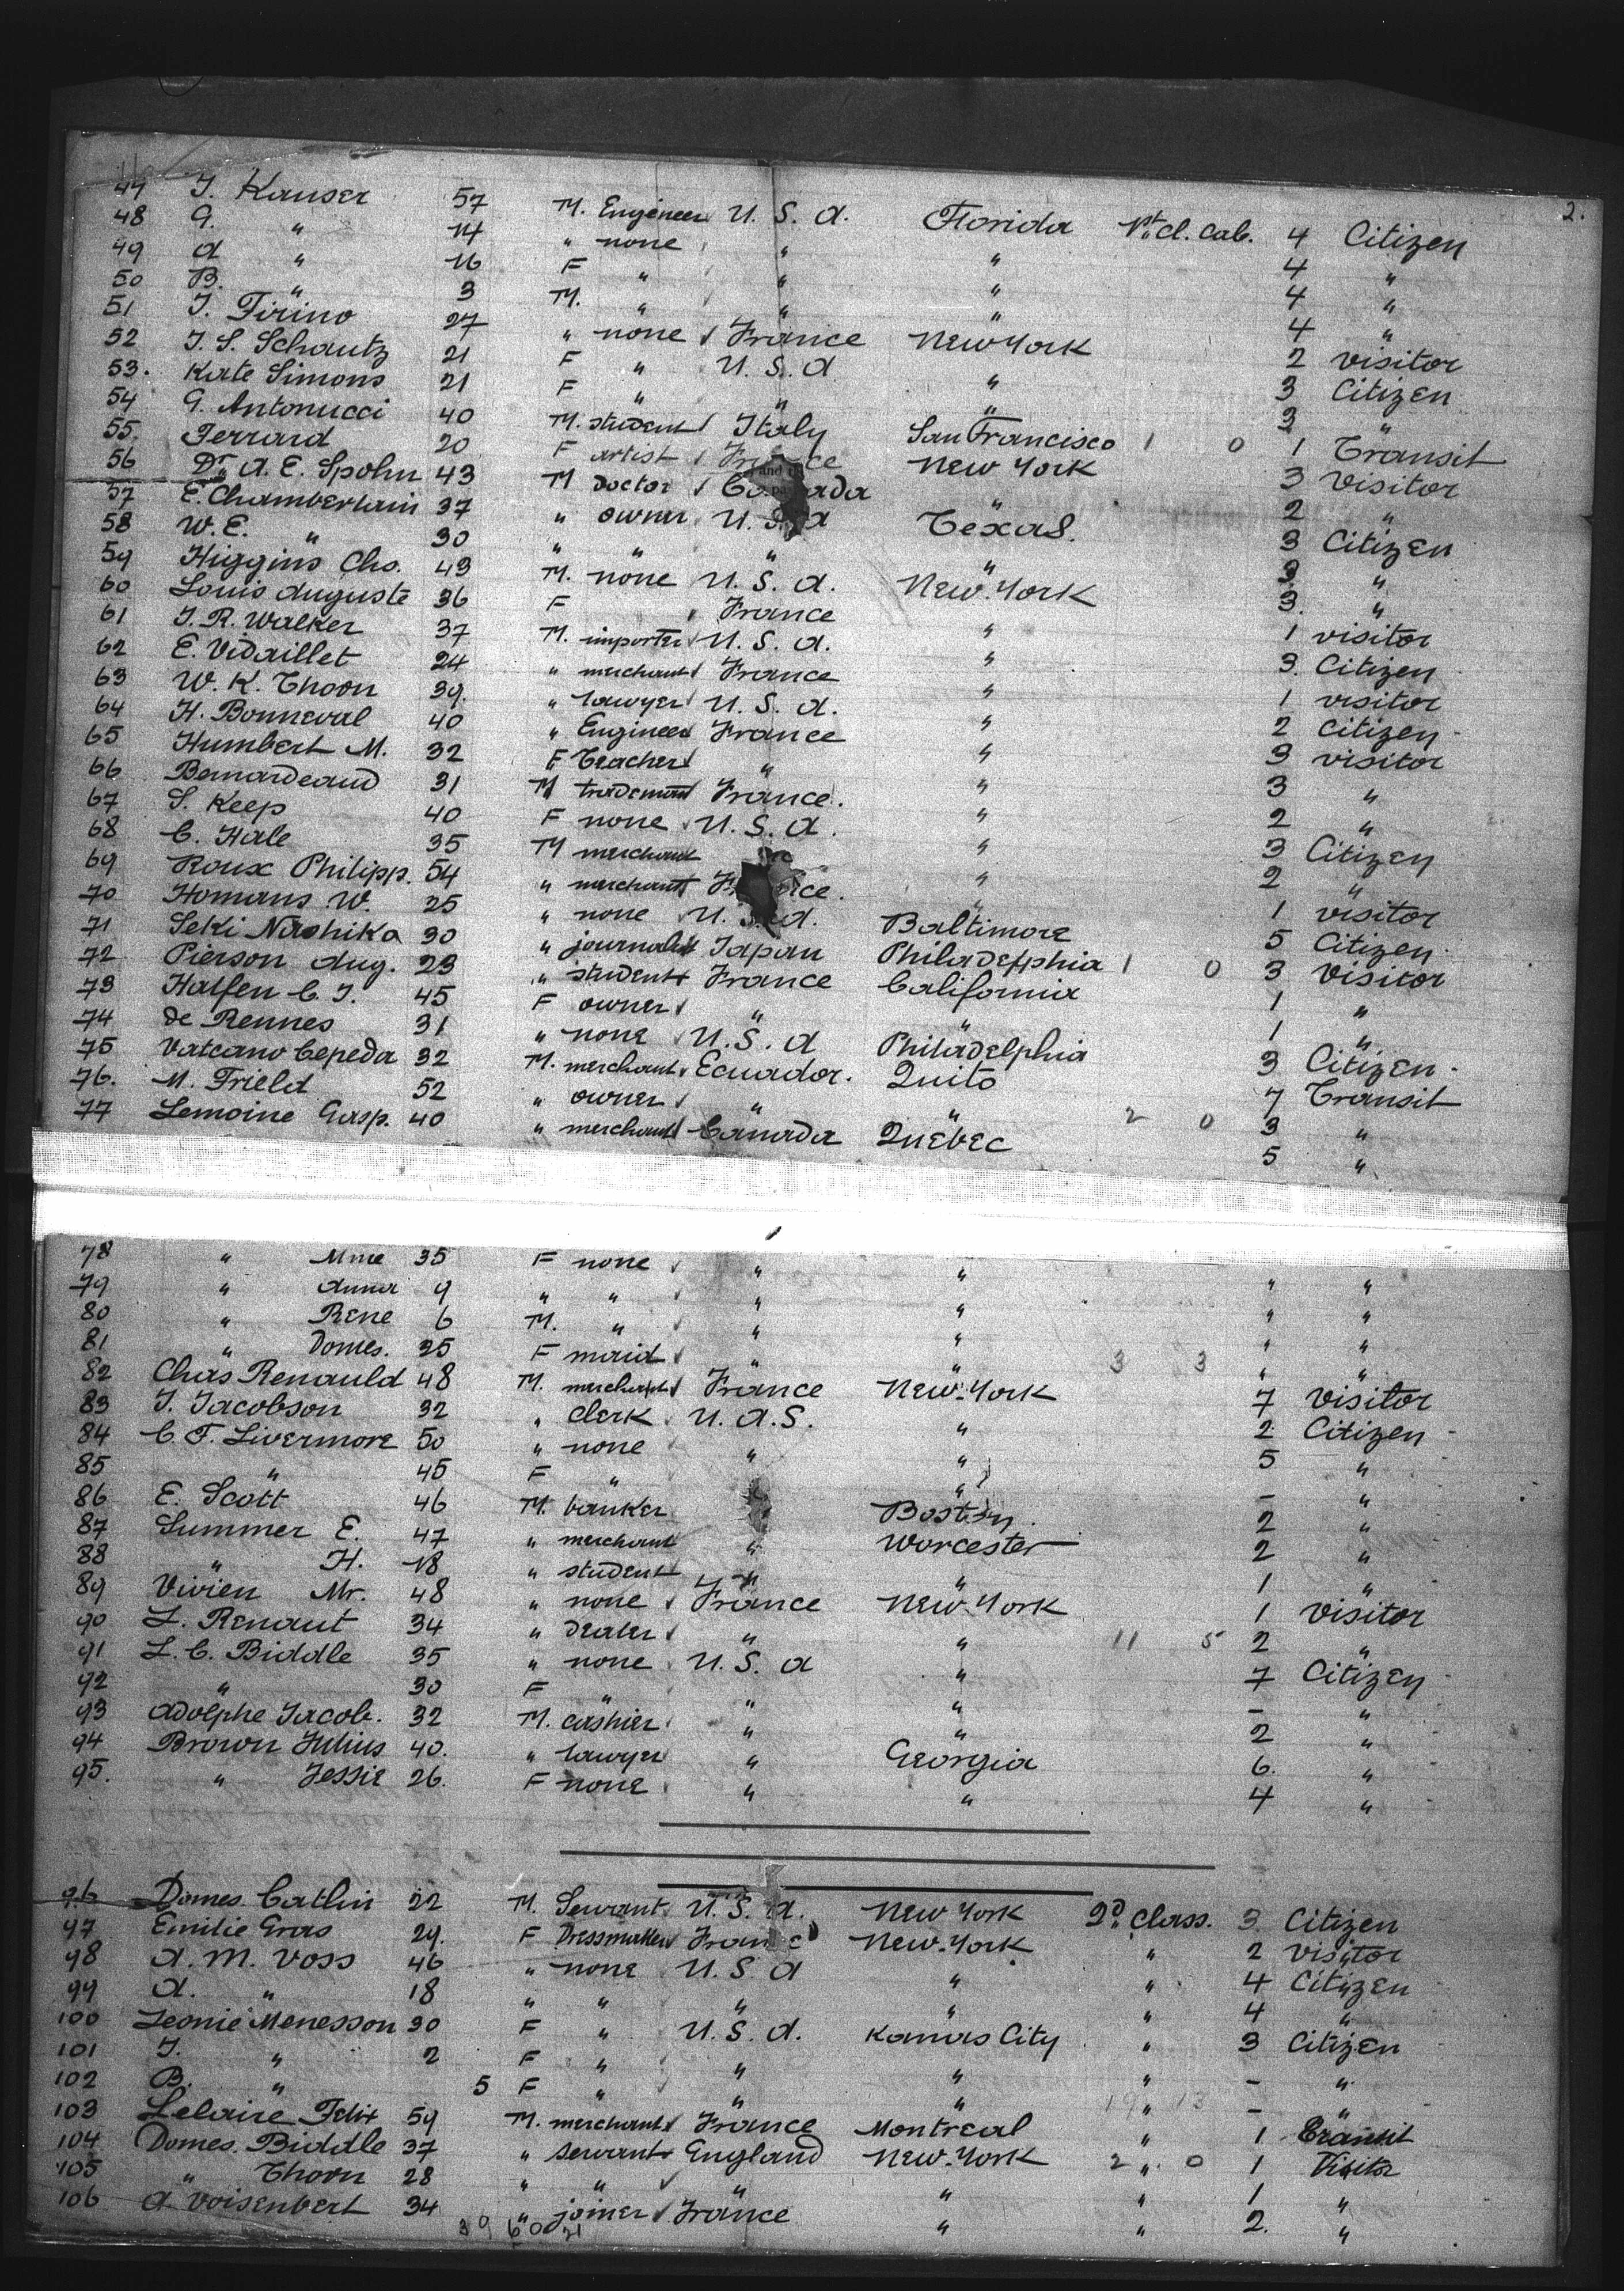 2.
47 J. Kauser 57 M. Engineer U. S. A. Florida 1st cl. cab. 4 Citizen
48 G. " 14 " none " " 4 "
49 A " 16 F " " " 4 "
50 B. " 3 M. " " " 4 "
51 J. Firino 27 " none France New York 2 visitor
52 J. S. Schautz 21 F " U. S. A " 3 Citizen
53. Kate Simons 21 F " " " 3 "
54 G. Antonucci 40 M. student Italy San Francisco 1 0 1 Transit
55. Ferrard 20 F artist France New York 3 Visitor
56 Dr A. E. Spohn 43 M Doctor Canada " 2 "
57 E. Chamberlain 37 " owner U. S. A Texas. 3 Citizen
58 W. E. " 30 " " " " 3 "
59 Higgins Chs. 43 M. none U. S. A. New York 3. "
60 Louis Auguste 36 F France " 1 visitor
61 J. R. Walker 37 M. importer U. S. A. " 3. Citizen
62 E. Vidaillet 24 " merchant France " 1 visitor
63 W. K. Thoon 39. " lawyer U. S. A. " 2 Citizen
64 H. Bonneval 40 " Engineer France " 3 visitor
65 Humbert M. 32 F Teacher " " 3 "
66 Bernardeaud 31 M trademan France. " 2 "
67 S. Keep 40 F none U. S. A. " 3 Citizen
68 C. Hale 35 M merchant " 2 "
69 Roux Philipp. 54 " merchant France. " 1 visitor
70 Homans W. 25 " none U. S. A. Baltimore 5 Citizen
71 Seki Nashika 30 " journalist Japan Philadelphia 1 0 3 Visitor
72 Pierson Aug. 23 " student France California 1 "
73 Halfen C. J. 45 F owner " " 1 "
74 de Rennes 31 " none U. S. A Philadelphia 3 Citizen
75 Vatcano Cepeda 32 M. merchant Ecuador. Quito 7 Transit
76. M. Frield 52 " owner " " 2 0 3 "
77 Lemoine Gasp. 40 " merchant Canada Quebec 5 "
78 " Mme 35 F none " " " "
79 " Anna 9 " " " " " "
80 " Rene 6 M. " " " " "
81 " Domes. 25 F maid " " 3 3 " "
82 Chas Renauld 48 M. merchant France New York 7 Visitor
83 J. Jacobson 32 " Clerk U. A. S. " 2 Citizen
84 C. F. Livermore 50 " none " " 5 "
85 " 45 F " " - "
86 E. Scott 46 M. banker Boston 2 "
87 Summer E. 47 " merchant " Worcester 2 "
88 " H. 18 " student " " 1 "
89 Vivien Mr. 48 " none France New York 1 Visitor
90 L. Renaut 34 " dealer " " 11 5 2 "
91 L. C. Biddle 35 " none U. S. A " 7 Citizen
92 " 30 F " " " - "
93 Adolphe Jacob. 32 M. cashier " " 2 "
94 Brown Julius 40. " lawyer " Georgia 6. "
95. " Jessie 26. F none " " 4 "
96 Domes. Catlin 22 M. Servant U. S. A. New York 2d class. 3 Citizen
97 Emilie Gras 29. F Dressmaker France New York " 2 Visitor
98 A. M. Voss 46 " none U. S. A " " 4 Citizen
99 A. " 18 " " " " " 4 "
100 Leonie Menesson 30 F " U. S. A. Kansas City " 3 Citizen
101 J. " 2 F " " " " - "
102 B. " 5 F " " " " - "
103 Lelaire Felix 59 M. merchant France Montreal " 1 Transit
104 Domes. Biddle 37 " servant England New York 2 " 0 1 Visitor
105 " Thoon 28 " " " " " 1 "
106 A Voisenbert 34 " joiner France " " 2. "
39 60 21